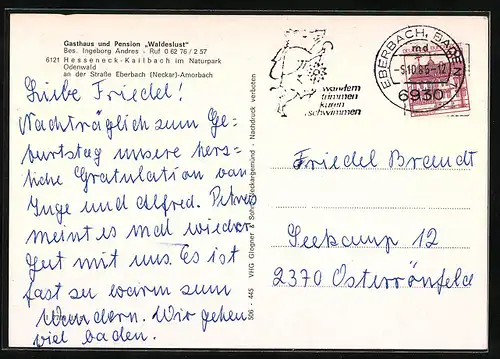 Gasthaus und Pension „Waldeslust"
Bes. Ingeborg Andres - Ruf 0 62 76 / 2 57
6121 Hesseneck-Kailbach im Naturpark
Odenwald
an der Straße Eberbach (Neckar)-Amorbach
Liebe Friedel!
Nachträglich zum Ge-
burtstag unsere herz-
liche Gratulation von
Inge und Alfred. Petrus
meint es mal wieder
gut mit uns. Es ist
fast zu warm zum
Wandern. Wir gehen
viel baden.
506 - 445 VHG Glogner & Sohn, Neckargemünd - Nachdruck verboten
wandern
trimmen
kuren
schwimmen
EBERBACH, BADEN
md
-5.10.85-12
6930
Friedel Brandt
Seekamp 12
2370 Osterrönfeld